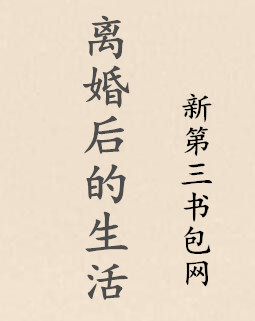 离婚后的生活
新第三书包网